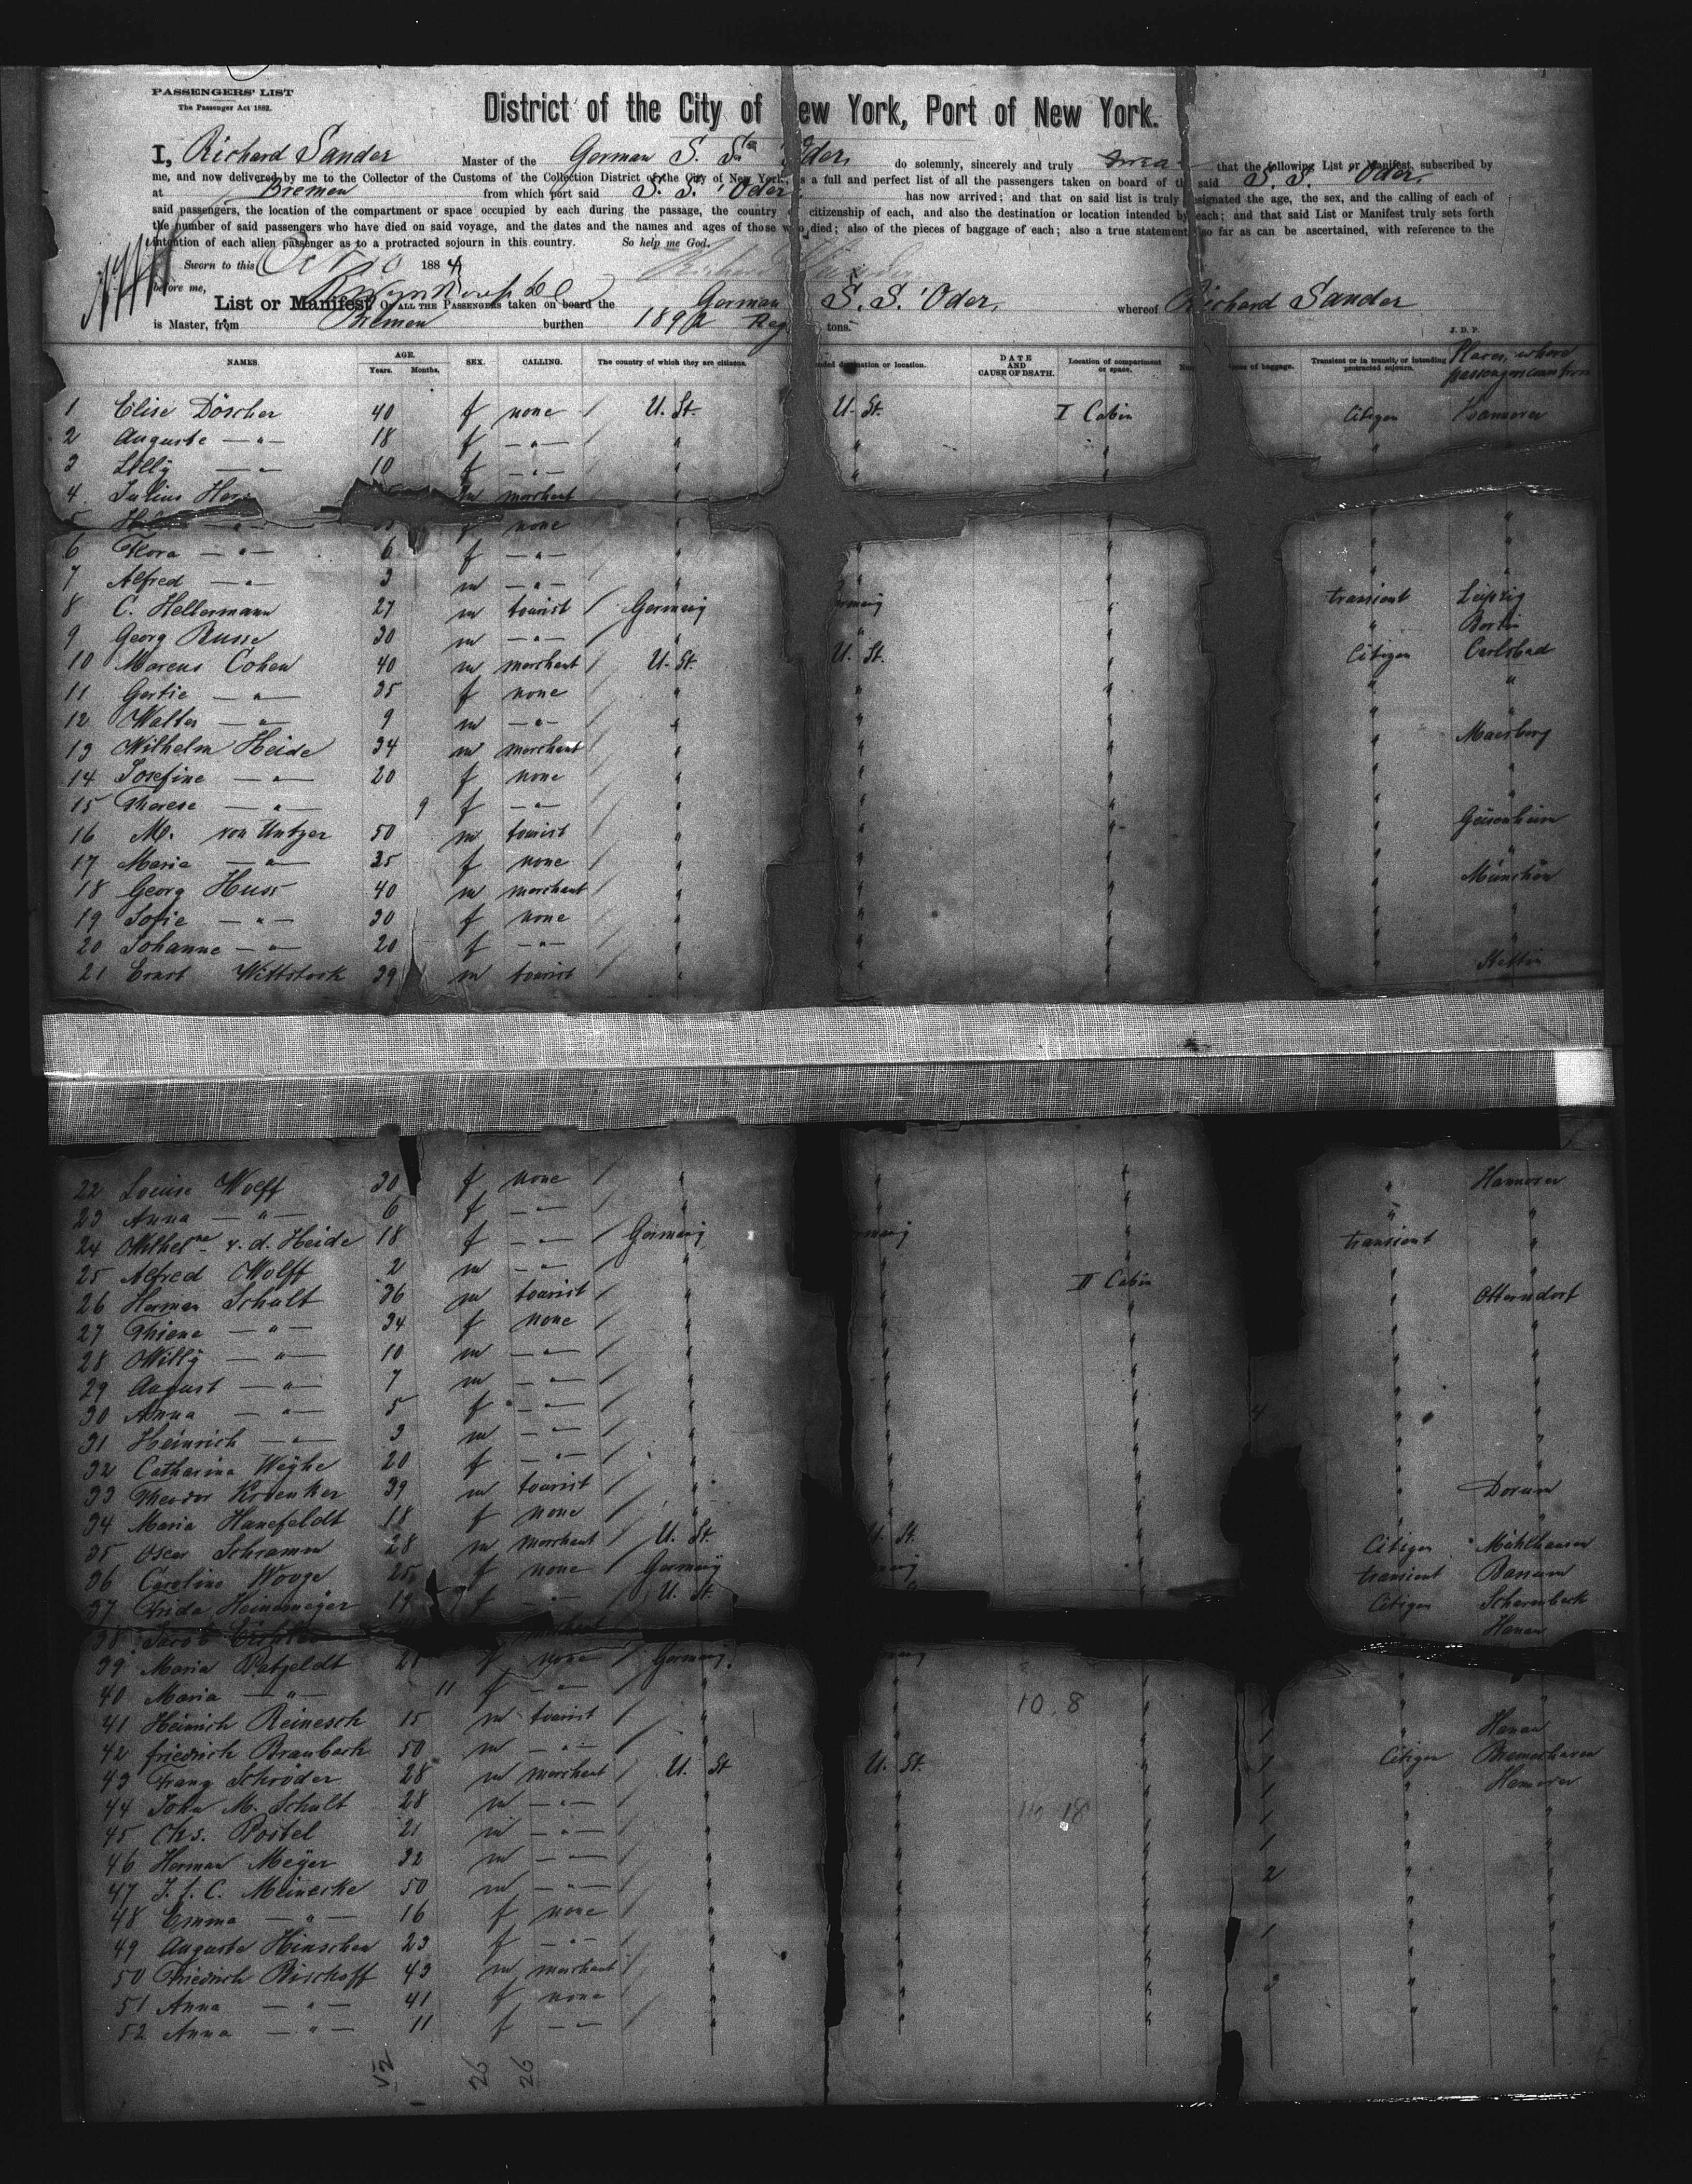 PASSENGERS' LIST
The Passenger Act 1882.
District of the City of ew York, Port of New York.
I, Richard Sander Master of the German S. S. Oder, do solemnly, sincerely and truly that the following List or Manifest, subscribed by
me, and now delivered by me to the Collector of the Customs of the Collection District of the City of New York, is a full and perfect list of all the passengers taken on board of the said S. S. Oder,
at Bremen from which port said S. S. 'Oder' has now arrived; and that on said list is truly designated the age, the sex, and the calling of each of
said passengers, the location of the compartment or space occupied by each during the passage, the country citizenship of each, and also the destination or location intended by each; and that said List or Manifest truly sets forth
the number of said passengers who have died on said voyage, and the dates and the names and ages of those who died; also of the pieces of baggage of each; also a true statement so far as can be ascertained, with reference to the
intention of each alien passenger as to a protracted sojourn in this country. So help me God.
Sworn to this 188 4 Richard Sander
before me,
List or Manifest OF ALL THE PASSENGERS taken on board the German S. S. 'Oder, whereof Richard Sander
is Master, from Bremen burthen Reg tons.
J. D. P.
NAMES. AGE. Years. Months. SEX. CALLING. The country of which they are citizens. nded destination or location. DATE AND CAUSE OF DEATH. Location of compartment or space. of baggage. Transient or in transit, or intending protracted sojourn. Places, where passengers came from
1 Elise Döscher 40 f none / U. St. U. St. I Cabin Citizen Hannover
2 Auguste —"— 18 f —"— / " " " "
3 Lilly —"— 10 f —"— / " " "
4 Julius m merchant "
5 —"— f none " " " "
6 Flora —"— 6 f —"— / " " " " "
7 Alfred —"— 3 m —"— / " " " "
8 C. Hellermann 27 m tourist / Germany rmany " transient Leipzig
9 Georg Busse 30 m —"— / " " " " Berlin
10 Marcus Cohen 40 m merchant / U. St. U. St. " Citizen Carlsbad
11 Gertie —"— 35 f none / " " " " "
12 Walter —"— 9 m —"— / " " " " "
13 Wilhelm Heide 34 m merchant / " " " "
14 Josefine —"— 20 f none / " " " " "
15 Therese —"— 9 f —"— / " " " " "
16 M. von Untzer 50 m tourist / " " " " Geisenheim
17 Maria —"— 35 f none / " " " " "
18 Georg Huss 40 m merchant / " " " " München
19 Sofie —"— 30 f none / " " " " "
20 Johanne —"— 20 f —"— / " " " " "
21 Ernst Wittstock 39 m tourist / " " " " Stettin
22 Louise Wolff 30 f none / " " " " Hannover
23 Anna —"— 6 f —"— / " " " " "
24 Wilhelne v. d. Heide 18 f —"— / Germany many " transient "
25 Alfred Wolff 2 m —"— / " " " "
26 Herman Schult 36 m tourist / " " II Cabin " Otterndorf
27 Thiene —"— 34 f none / " " " " "
28 Willy —"— 10 m —"— / " " " " "
29 August —"— 7 m —"— / " " " " "
30 Anna —"— 5 f —"— / " " " 4 " "
31 Heinrich —"— 3 m —"— / " " " " "
32 Catharina Weyhe 20 f —"— / " " " " "
33 Theodor Kroenker 39 m tourist / " " " " Dorum
34 Maria Hanefeldt 18 f none / " " " " "
35 Oscar Schramm 28 m merchant / U. St. U. St. " Citizen Mühlhausen
36 Caroline Wooge 25 f none / Germany many " transient Bassum
37 Frida Heinemeyer 19 f —"— / U. St. Citizen Scharmbeck
38 Jacob Hanau
39 Maria Patzeldt 21 f none / Germany. many "
40 Maria —"— 11 f —"— / " " 10.8 " " "
41 Heinrich Reinesch 15 m tourist / " " " 1 " Hanau
42 Friedrich Braubach 50 m —"— / " " " 1 Citizen Bremerhaven
43 Franz Schröder 28 m merchant / U. St U. St. " 1 " Hannover
44 John M. Schult 28 m —"— / " " " 1 " "
45 Chs. Postel 21 m —"— / " " " 1 " "
46 Herman Meyer 32 m —"— / " " " 2 " "
47 J. f. C. Meinecke 50 m —"— / " " " " "
48 Emma —"— 16 f none / " " " 1 " "
49 Auguste Hinschen 23 f —"— / " " " " "
50 Friedrich Bischoff 43 m merchant / " " " " "
51 Anna —"— 41 f none / " " " " "
52 Anna —"— 11 f —"— / " " "
52 26 26